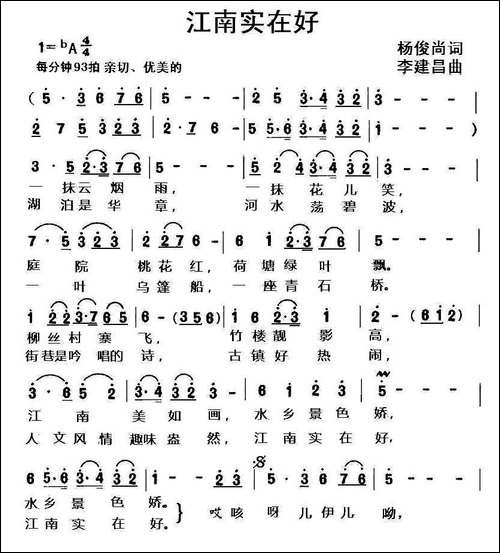 江南实在好
1=ᵇA 4/4
杨俊尚词
每分钟93拍 亲切、优美的
李建昌曲
( 5 · 3 6 7 6 | 5 - - - | 2 5 3·4 3 2 | 3 - - - |
2 7 5 3 2 3 | 2 · 7 6 - | 5 5·6 3·4 3 2 | 1 - - - )
3 · 5 2·3 7 6 | 5 - - - | 5 2 4 3·4 3 2 | 3 - - - |
一 抹云 烟 雨， 一 抹 花 儿 笑，
湖 泊是 华 章， 河 水 荡 碧 波，
7 · 5 3 2 3 | 2 2 7 6 - | 6 1 2·3 7 6 | 5 - - - |
庭 院 桃花 红， 荷 塘 绿 叶 飘。
一 叶 乌篷 船， 一 座 青 石 桥。
1 2 2 3·7 6 5 | 6 - (3 5 6) | 5 6 4·3 2 3 | 2 - (6 1 2) |
柳 丝 村 寨 飞， 竹 楼 靓 影 高，
街 巷是 吟 唱的 诗， 古 镇 好 热 闹，
3 · 6 5 2 | 3·4 3 2 3 - | 6 1 2 3 | 5 - - - |
江 南 美 如 画， 水 乡 景 色 娇，
人 文 风 情 趣味 盎 然， 江 南 实 在 好，
6 5·6 3·4 3 2 | 1 - - - | 5 · 3 6 7 6 | 5 - - - |
水 乡 景 色 娇。 哎 咳 呀 儿 伊 儿 呦，
江 南 实 在 好。